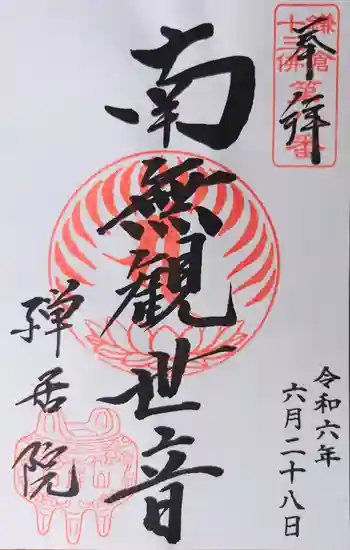 奉拝
鎌倉
十三佛
第 番
南無観世音
禅居院
令和六年
六月二十八日